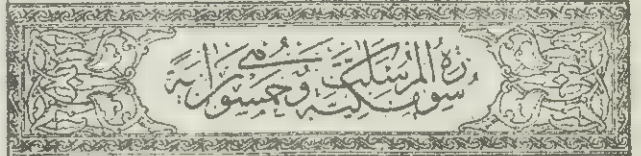 سورة المرسلات مكية وهي خمسون آية